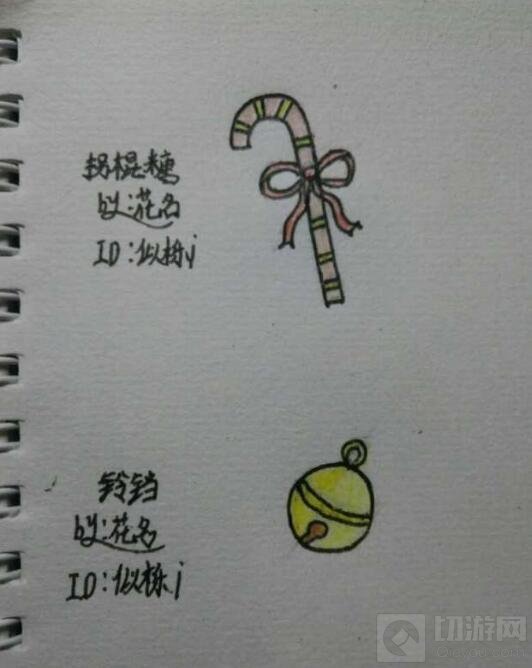 拐棍糖
by:花名
ID:似栎j
铃铛
by:花名
ID:似栎j
切游网
Qieyou.com